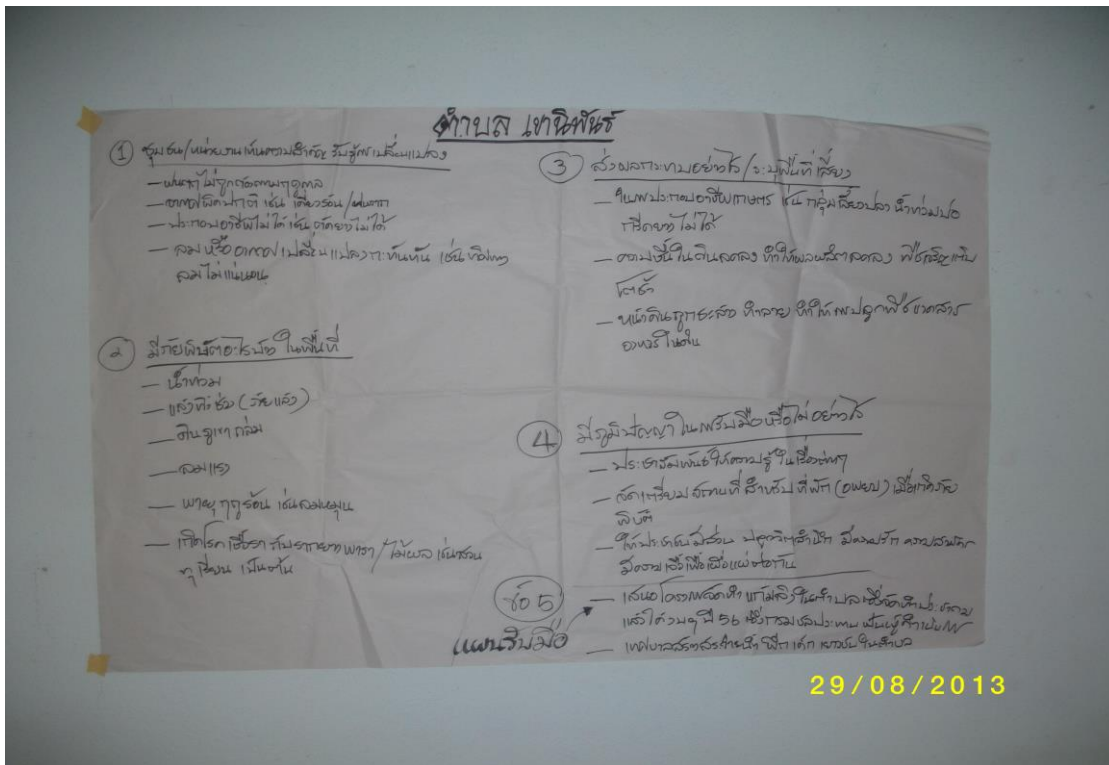 ตำบล เขานิพันธ์
① ชุมชน/หน่วยงานเห็นความสำคัญ รับรู้การเปลี่ยนแปลง
— ฝนตกไม่ถูกต้องตามฤดูกาล
— อากาศผิดปกติ เช่น เดี๋ยวร้อน/ฝนตก
— ประกอบอาชีพไม่ได้ เช่น ตัดยางไม่ได้
— ลม หรือ อากาศ เปลี่ยนแปลงกะทันหัน เช่น ทิศทาง
ลมไม่แน่นอน
② มีภัยพิบัติอะไรบ้าง ในพื้นที่
— น้ำท่วม
— แล้ง (ภัยแล้ง)
— ดินภูเขาถล่ม
— ลมแรง
— พายุฤดูร้อน เช่นลมหมุน
— เกิดโรคเชื้อรากับรากยางพารา/ไม้ผล เช่นสวน
ทุเรียน เป็นต้น
③ ส่งผลกระทบอย่างไร/ระบุพื้นที่เสี่ยง
— ในการประกอบอาชีพเกษตร เช่น กลุ่มเลี้ยงปลา น้ำท่วมบ่อ
กรีดยางไม่ได้
— ความชื้นในดินลดลง ทำให้ผลผลิตลดลง พืชเจริญเติบ
โตช้า
— หน้าดินถูกชะล้าง ทำลาย ทำให้การปลูกพืชขาดสาร
อาหารในดิน
④ มีภูมิปัญญาในการรับมือหรือไม่ อย่างไร
— ประชาสัมพันธ์ให้ความรู้ในเรื่องต่างๆ
— จัดเตรียมสถานที่สำหรับที่พัก (อพยพ) เมื่อเกิดภัย
พิบัติ
— ให้ประชาชนมีส่วน ปลูกจิตสำนึก มีความรัก ความสามัคคี
มีความเอื้อเฟื้อเผื่อแผ่ต่อกัน
ข้อ 5
แผนรับมือ
— เสนอโครงการจัดทำแก้มลิงในตำบล ซึ่งจัดทำประชาคม
แล้วได้งบฯ ปี 56 ซึ่งกรมชลประทานเป็นผู้ดำเนินการ
— เทศบาลสร้างสระว่ายน้ำ ฝึกเด็ก เยาวชนในตำบล
29/08/2013